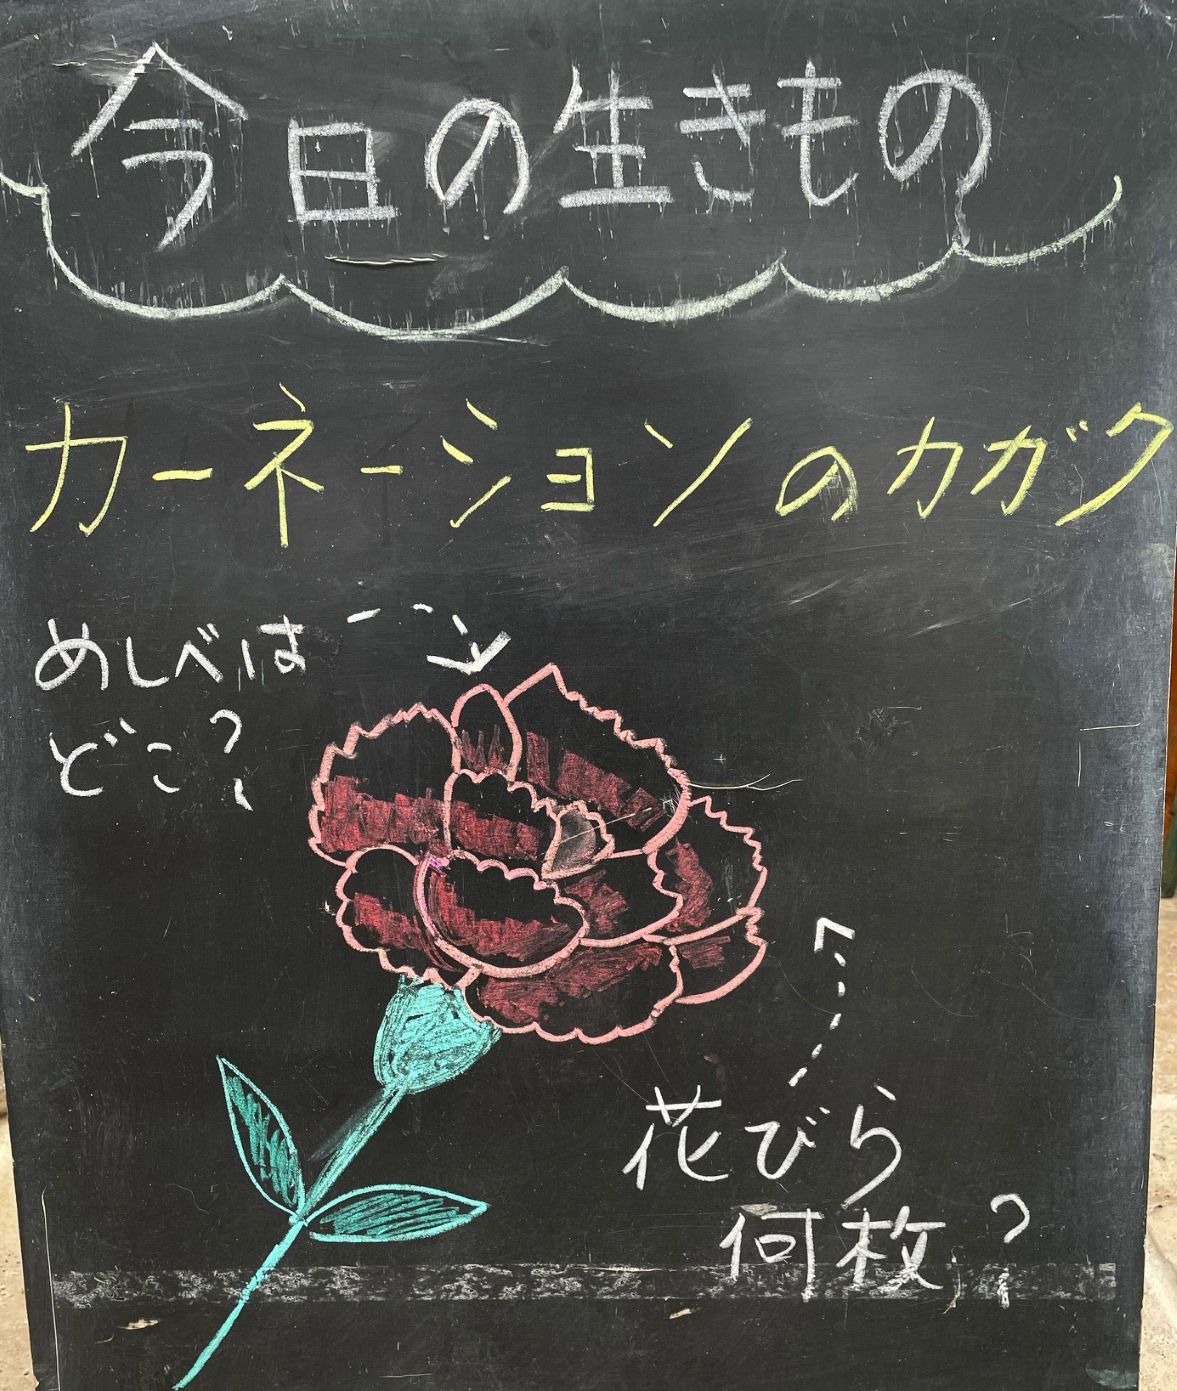 今日の生きもの
カーネーションのカガク
めしべは
どこ？
花びら
何枚？